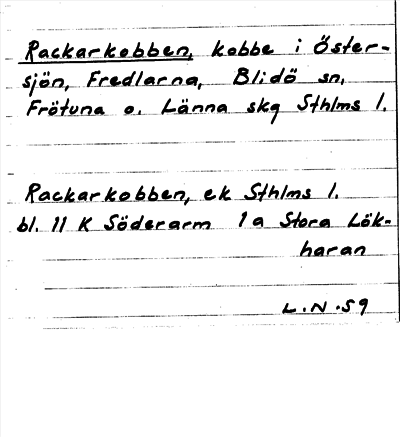 Rackarkobben, kobbe i Öster-
sjön, Fredlarna, Blidö sn,
Frötuna o. Länna skg Sthlms l.
Rackarkobben, ek Sthlms l.
bl. 11 K Söderarm 1a Stora Lök-
haran
L.N.59